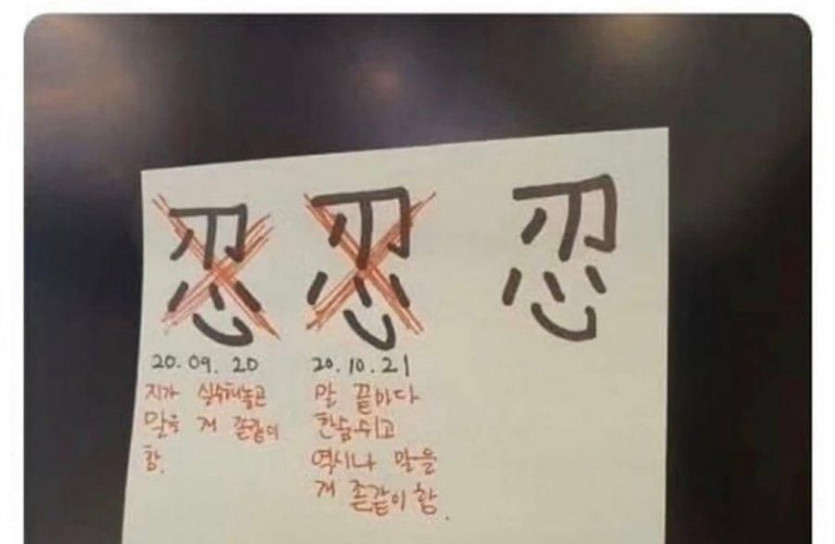 忍 忍 忍
20.09.20
지가 실수해놓곤
말을 개 졷같이
함.
20.10.21
말 끝마다
한숨쉬고
역시나 말을
개 졷같이 함.